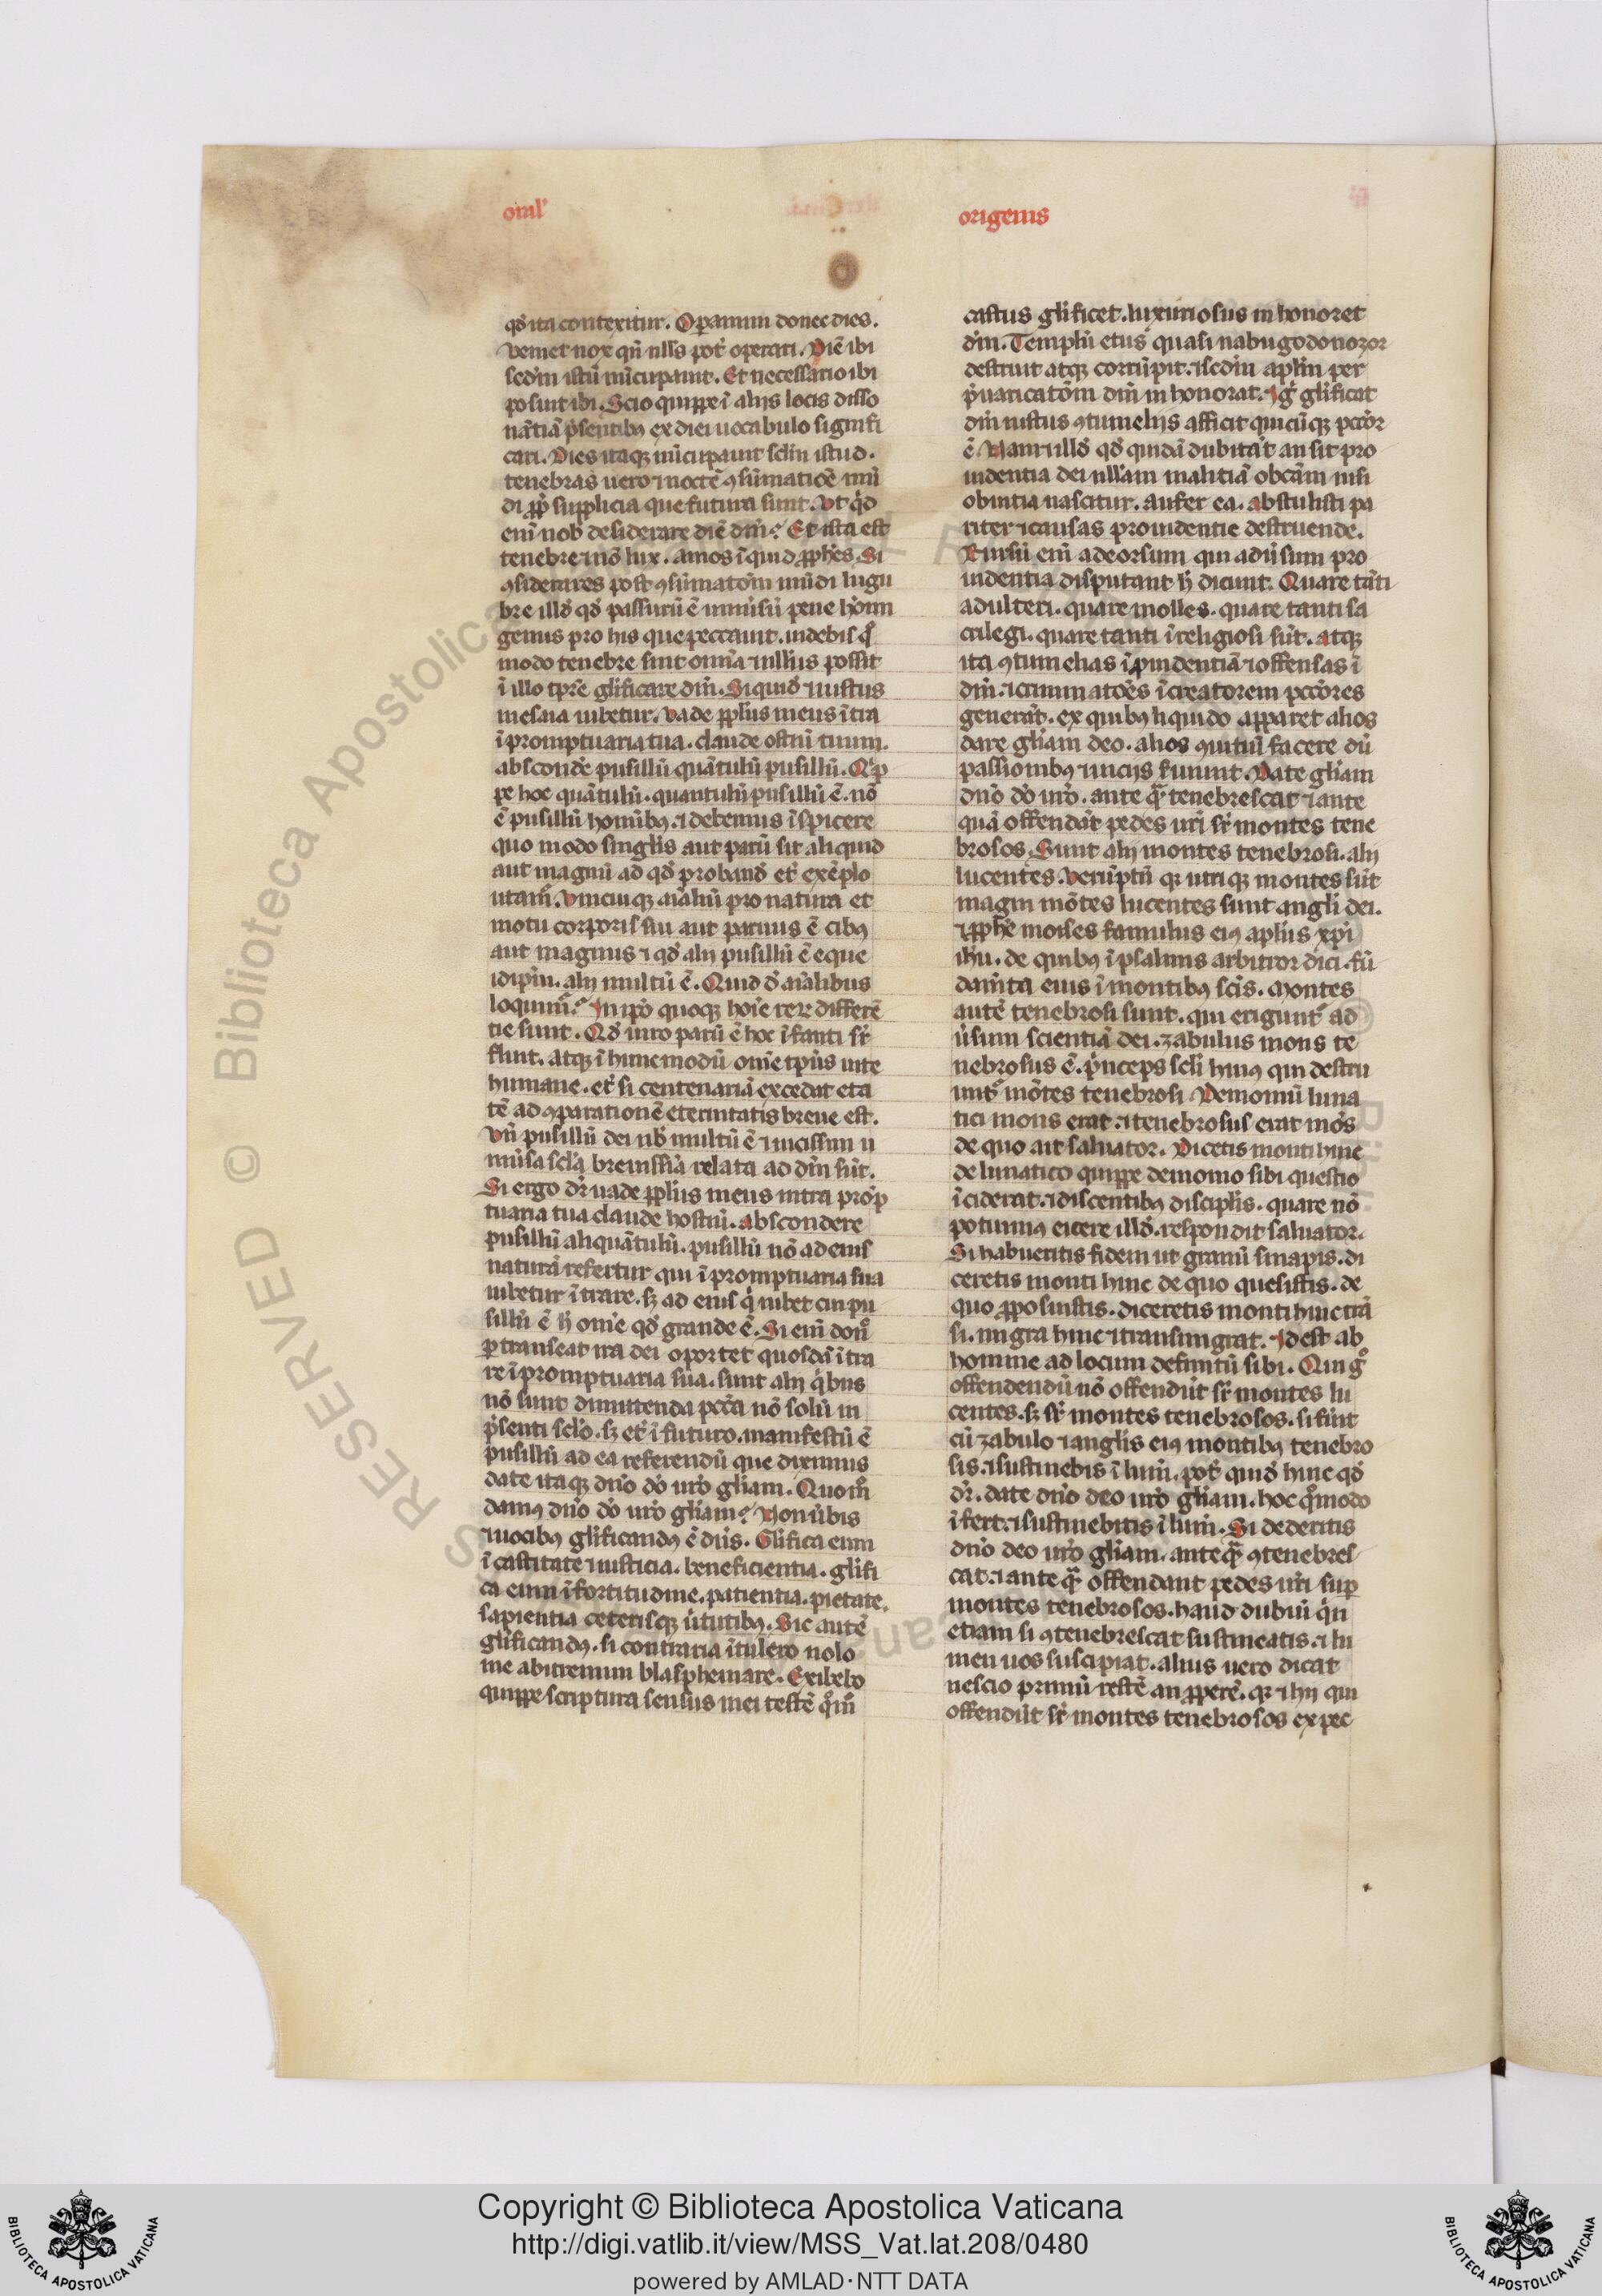 omľ
origenis
qđ ita contexitur. Operamini donec dies.
veniet nox qñ nll's pot̾ operari. Diē ibi
sedm̄ istū nūcupauit. Et necessario ibi
posuit ibi. Scio quippe ī alijs locis disso
nātiā p̾sentibꝰ ex diei uocabulo signifi
cari. Dies itaqꝫ nūcupauit sclm̄ istud.
tenebras uero ⁊ noctē ꝯsūmatiōē mū
di ꝓpt̾ supplicia que futura sunt. Vt qͥd
eni nob̾ desiderare diē dñi? Et ista est
tenebre ⁊ nō lux. amos īquid ꝓphēs. Si
ꝯsiderares post ꝯsūmatōm mūdi lugu
bre illđ qđ passurū ē uniu̾sū pene hōim
genus pro his que peccauit. uidebis qͦ
modo tenebre sint omīa ⁊ nullius possit
ī illo tp̄re glīficare dm̄. Siquidē ⁊ iustus
in esaia iubetur. Vade ꝓpl̾us meus ītra
ī promptuaria tua. claude ostiū tuum.
abscondē pusillū quātulū pusillū. Qͥp
pe hoc quātulū. quantulū pusillū ē. nō
ē pusillū homībꝰ. ⁊ debemus īspicere
quo modo singlis aut parū sit aliquid
aut magnū ad qđ probandū et̾ exēplo
utamͬ. Vnicuiqꝫ aīaliū pro natura et
motu corporis sui aut paruus ē cibꝰ
aut magnus ⁊ qđ alij pusillū ē eque
idip̄m. alij multū ē. Quid đ aīalibus
loquimͬ? In ip̄o quoqꝫ hoīe rerꝝ differē
tie sunt. Qđ uiro parū ē hoc īfanti sr̄
fluit. atqꝫ ī hunc modū om̄e tp̄us uite
humane. et̾ si centenariā excedat eta
tē ad ꝯparationē eternitatis breue est.
Vñ pusillū dei nb̾ multū ē ⁊ uicissim u
niu̾sa scl̾a breuissīa relata ad dm̄ sūt.
Si ergo dr̄ uade ꝓpl̾us meus intra prōp
tuaria tua claude hostiū. abscondere
pusillū aliquātulū. pusillū nō ad eius
naturā refertur qui ī promptuaria sua
iubetur ītrare. sꝫ ad eius qͥ iubet cui pu
sillū ē ħ om̄e qđ grande ē. Si eni donͨ
ꝑtranseat ira dei oportet quosdā ītra
re ī promptuaria sua. sunt alij qͥbus
nō sunt dimittenda pcc̄a nō solū in
p̾senti scl̾o. sꝫ et̾ ī futuro. manifestū ē
pusillū ad ea referendū que diximus
date itaqꝫ dño đo uro gl̾iam. Quom̊
damꝰ dño đo uro gl̾iam? Non ūbis
⁊ uocibꝰ glīficandꝰ ē dñs. Glifica eum
ī castitate ⁊ iusticia. beneficientia. glifi
ca eum ī fortitudine. patientia. pietate.
sapientia ceterisqꝫ u̾tutibꝰ. Sic autē
glīficandꝰ. si contraria ītulero nolo
me abitremini blasphemare. Exibebo
quippe scriptura sensus mei testē qͦm̄
castus gl̾ificet. luxuriosus inhonoret
dm̄. Templū etus quasi nabugodonozor
destruit atqꝫ corrūpit. ⁊ sedm̄ apl̾m per
p̾uaricatōm dm̄ inhonorat. Igͬ glificat
dm̄ iustus ꝯtumelijs afficit quicūqꝫ pccōr
ē. Nam ⁊ illđ qđ quidā dubitāt an sit pro
uidentia dei nullam malitiā obcām nisi
ob uitia nascitur. aufer ea. abstulisti pa
riter ⁊ causas prouidentie destruende.
Rursū eni adeorsum qui adu̾sum pro
uidentia disputant ħ dicunt. Quare tāti
adulteri. quare molles. quare tanti sa
crilegi. quare tanti īreligiosi sūt. atqꝫ
ita ꝯtumelias ī ꝓuidentiā ⁊ offensas ī
dm̄. ⁊ criminatōēs ī creatorem pccōres
generāt. ex quibꝰ liquido apparet alios
dare gl̾iam deo. alios ꝯuitiū facere dū
passionibꝰ ⁊ uicijs s̾uiunt. Date gl̾iam
dño đo uro. ante qͣ tenebrescat ⁊ ante
quā offendāt pedes uri sr̄ montes tene
brosos. Sunt alij montes tenebrosi. alij
lucentes. Verūptn̄ qꝛ utriqꝫ montes sūt
magni mōtes lucentes sunt angl̾i dei.
⁊ ꝓphē moises famulus eiꝰ apl̾us xp̄i
ih̄u. de quibꝰ ī psalmis arbitror dici. fū
dam̄ta eius ī montibꝰ sc̄is. Montes
autē tenebrosi sunt. qui eriguntͬ ad
u̾sum scientiā dei. zabulus mons te
nebrosus ē. p̾nceps scl̾i huiꝰ qui destru
untͬ mōtes tenebrosi. Demoniū luna
tici mons erat. ⁊ tenebrosus erat mōs
de quo ait saluator. Dicetis monti huic
de lunatico quippe demonio sibi questio
īciderat. ⁊ discentibꝰ disciplis. quare nō
potuimꝰ eicere illđ. respondit saluator.
Si habueritis fidem ut granū sinapis. di
ceretis monti huic de quo quesistis. de
quo ꝓposuistis. diceretis monti huic trā
si. migra hinc ⁊ transmigrat. Id est ab
homine ad locum defuntū sibi. Qui gͦ
offendendū nō offendūt sr̄ montes lu
centes. sꝫ sr̄ montes tenebrosos. si fūīt
cū zabulo ⁊ angl̾is eiꝰ montibꝰ tenebro
sis. ⁊ sustinebis ī lum̄. pot̾ quidē hinc qđ
dr̄. date dño deo uro gl̾iam. hoc qͦmodo
īfert. ⁊ sustinebitis ī lum̄. Si dederitis
dño deo uro gl̾iam. anteqͣ ꝯtenebres
cat. ⁊ ante qͣ offendant pedes uri suꝑ
montes tenebrosos. haud dubiū qͥn
etiam si ꝯtenebrescat sustineatis. ⁊ lu
men uos suscipiat. alius uero dicat
nescio primū restē an ꝓperē. qꝛ ⁊ hij qui
offendūt sr̄ montes tenebrosos expec
Copyright © Biblioteca Apostolica Vaticana
http://digi.vatlib.it/view/MSS_Vat.lat.208/0480
powered by AMLAD·NTT DATA